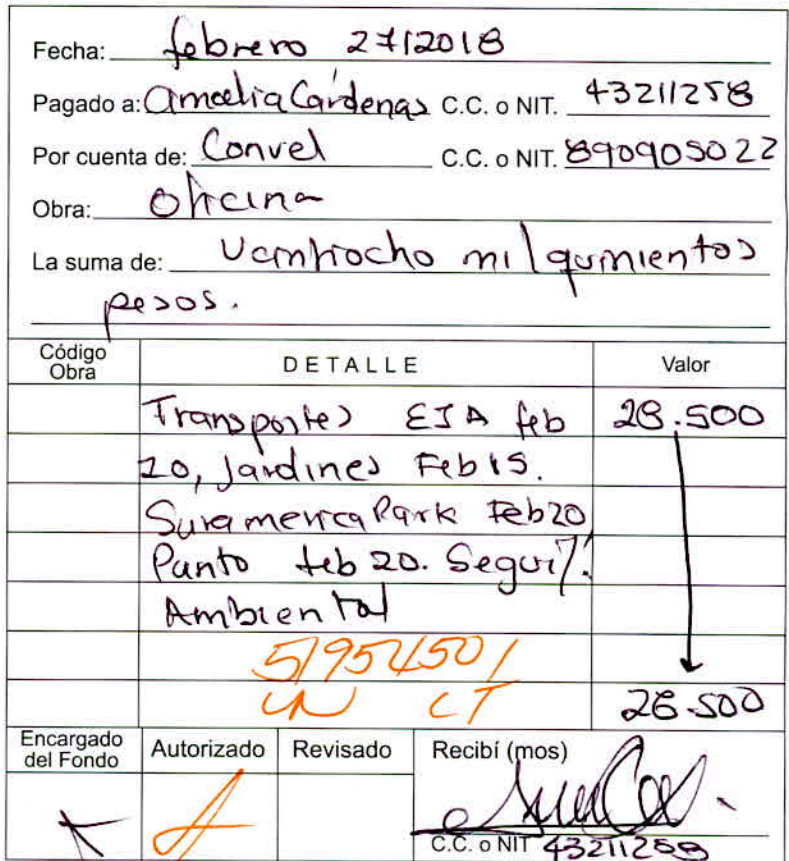 Fecha: febrero 27/2018
Pagado a: Amelia Cardenas C.C. o NIT. 43211258
Por cuenta de: Convel C.C. o NIT. 890905022
Obra: Oficina
La suma de: Veintiocho mil quinientos
pesos.
Código Obra DETALLE Valor
Transportes EIA feb 28.500
20, Jardines Feb 15.
Suramerica Park Feb 20
Punto feb 20. Segui/.
Ambiental
51954501
UN CT 28.500
Encargado del Fondo Autorizado Revisado Recibí (mos)
C.C. o NIT 43211258